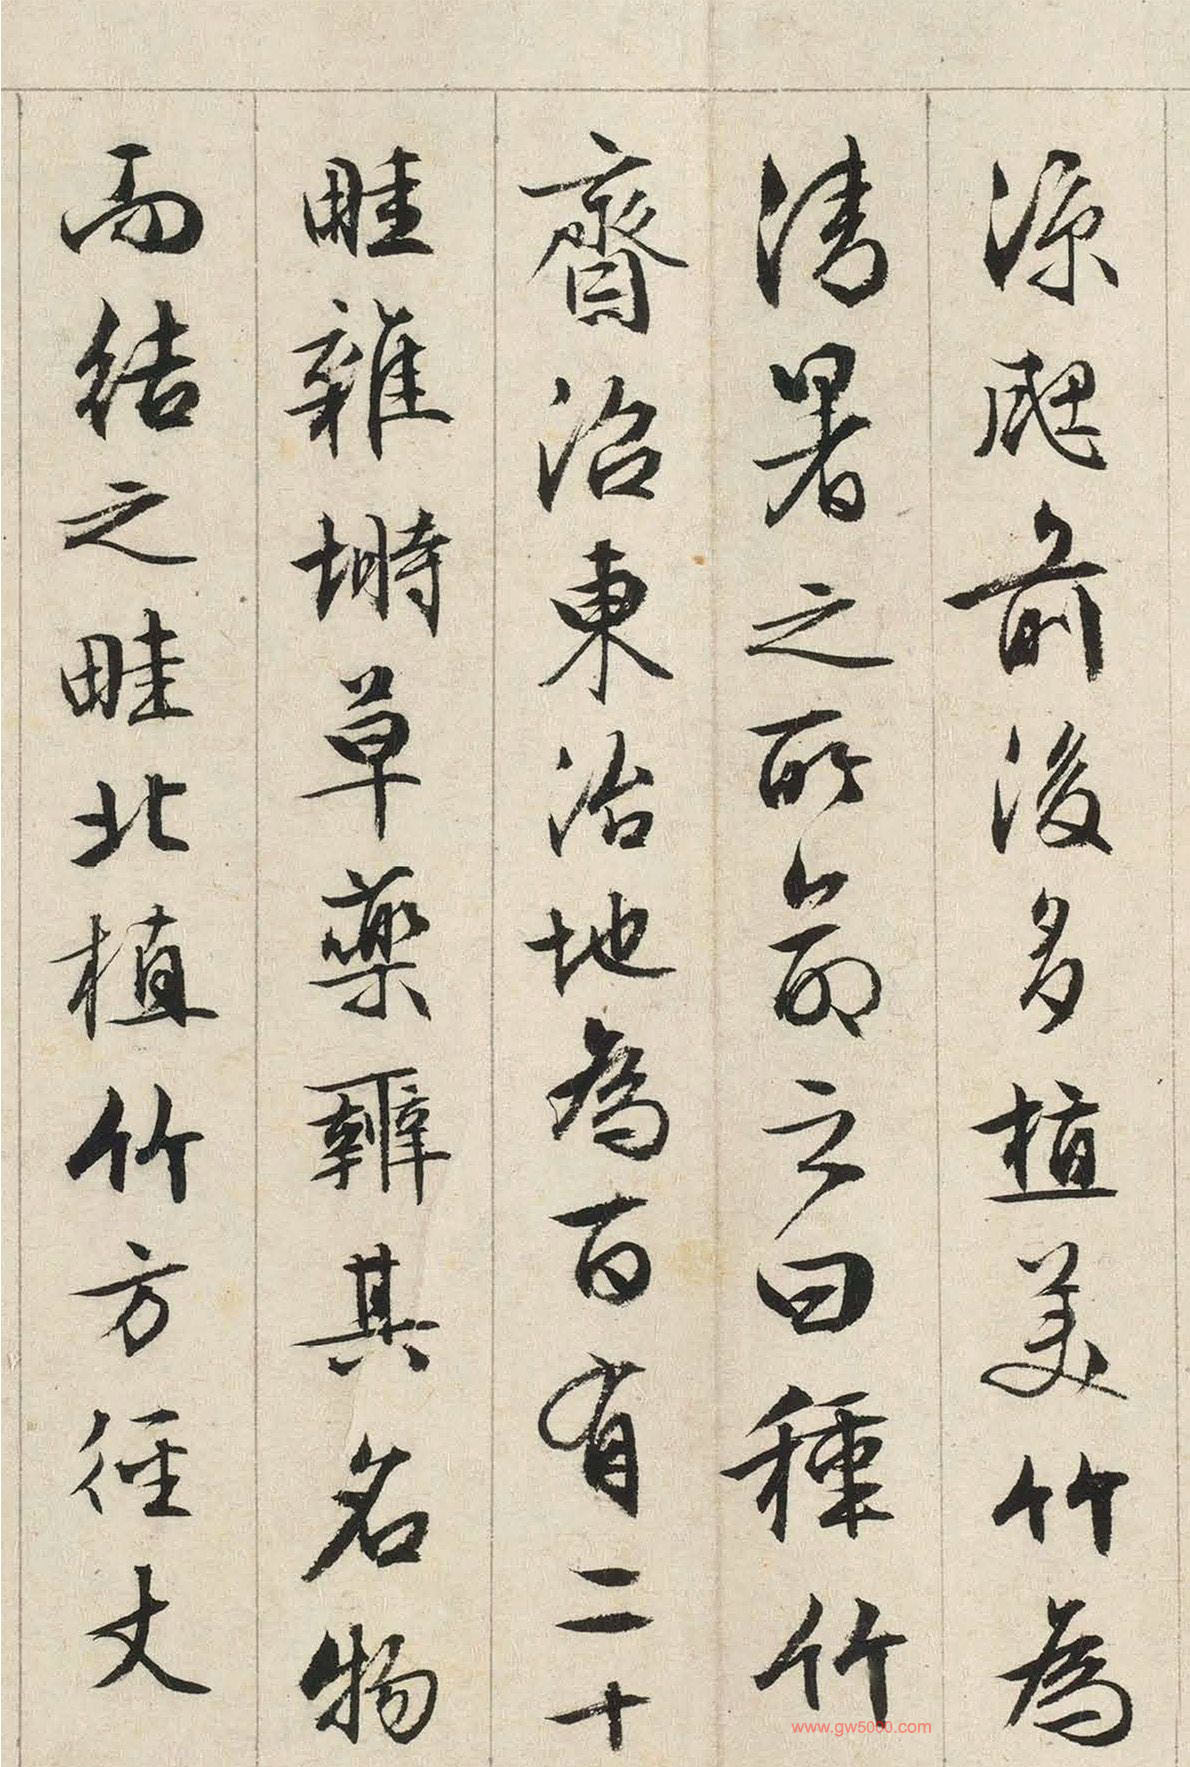 深颸前後多植美竹為
清暑之所命之曰種竹
齋治東治地為百有二十
畦雜塒草藥辨其名物
而結之畦北植竹方徑丈
www.gw5000.com